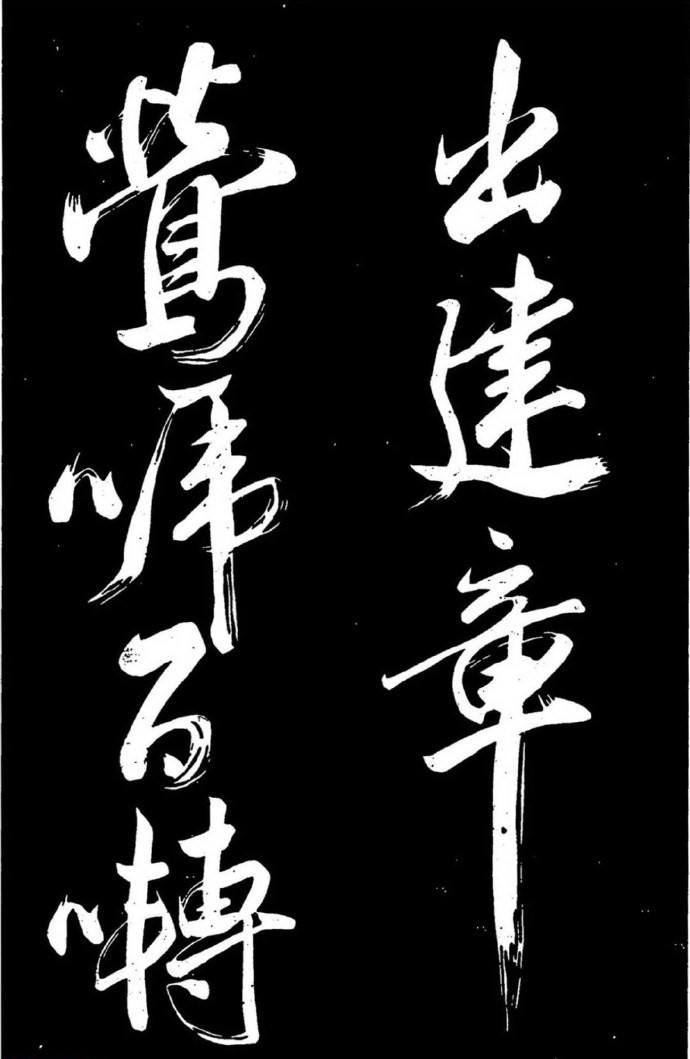 出建章
鶯唬百囀